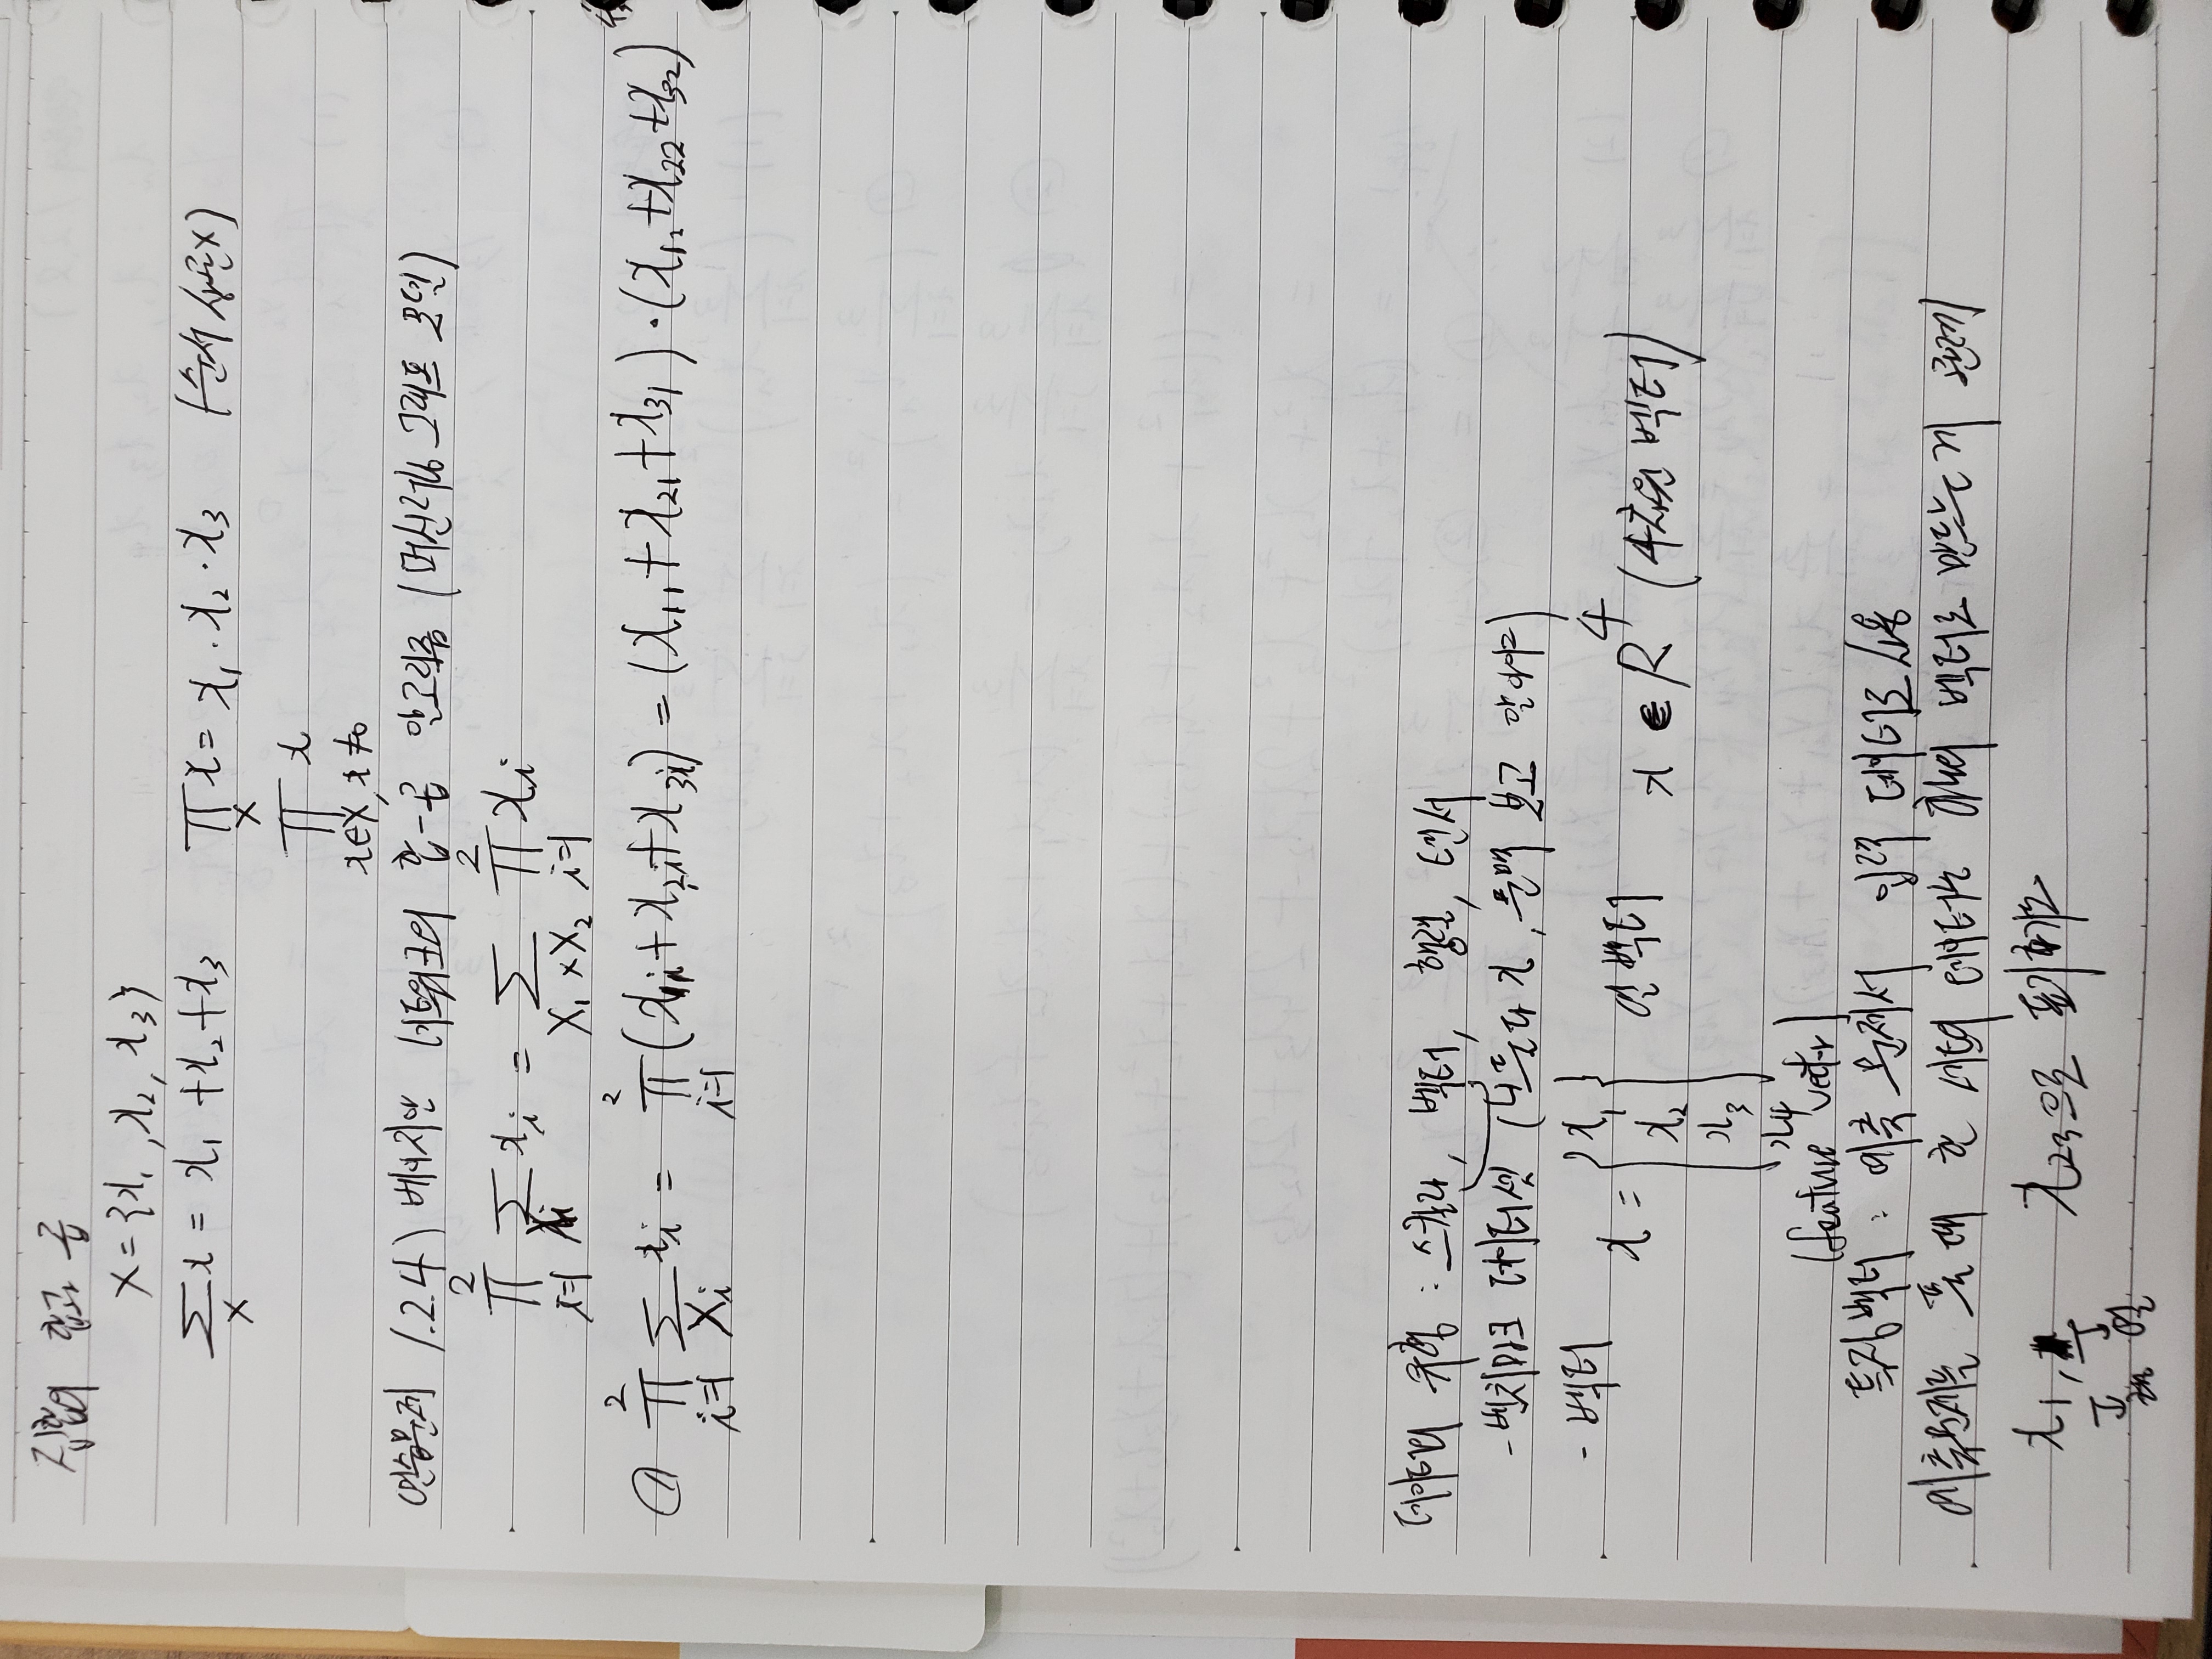 집합의 합과 곱
X = {x₁, x₂, x₃}
∑_X x = x₁ + x₂ + x₃   ∏_X x = x₁ · x₂ · x₃   (순서 상관X)
∏_{x∈X, x≠0} x
연습문제 1.2.4) 베이지안 네트워크의 합-곱 알고리즘 (머신러닝 그래프 모델)
∏_{i=1}^{2} ∑_{X_i} x_i = ∑_{X₁×X₂} ∏_{i=1}^{2} x_i
① ∏_{i=1}^{2} ∑_{X_i} x_i = ∏_{i=1}^{2} (x_{1i} + x_{2i} + x_{3i}) = (x₁₁ + x₂₁ + x₃₁) · (x₁₂ + x₂₂ + x₃₂)
데이터의 유형 : 스칼라, 벡터, 행렬, 텐서
- 벤치마크 데이터셋 (둘다 x, 문맥 보고 알아야)
- 벡터
x = {x₁ x₂ x₃ x₄} 열벡터   x ∈ R⁴ (4차원 벡터)
(feature vector)
특징벡터 : 예측 문제서 입력 데이터로 사용
예측문제를 풀 때 한 세트의 데이터는 하나의 벡터로 만드는 게 관례
x₁,   x₂₃으로 표기하기도
행 열